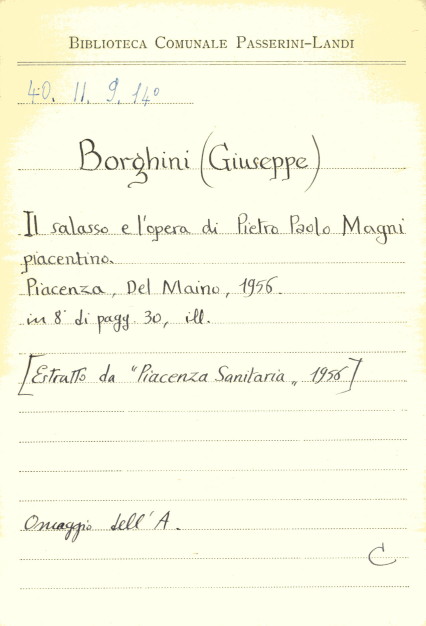 BIBLIOTECA COMUNALE PASSERINI-LANDI
40. II. 9. 14°
Borghini (Giuseppe)
Il salasso e l'opera di Pietro Paolo Magni
piacentino.
Piacenza, Del Maino, 1956.
in 8° di pagg. 30, ill.
[Estratto da "Piacenza Sanitaria" 1956]
Omaggio dell'A.
C